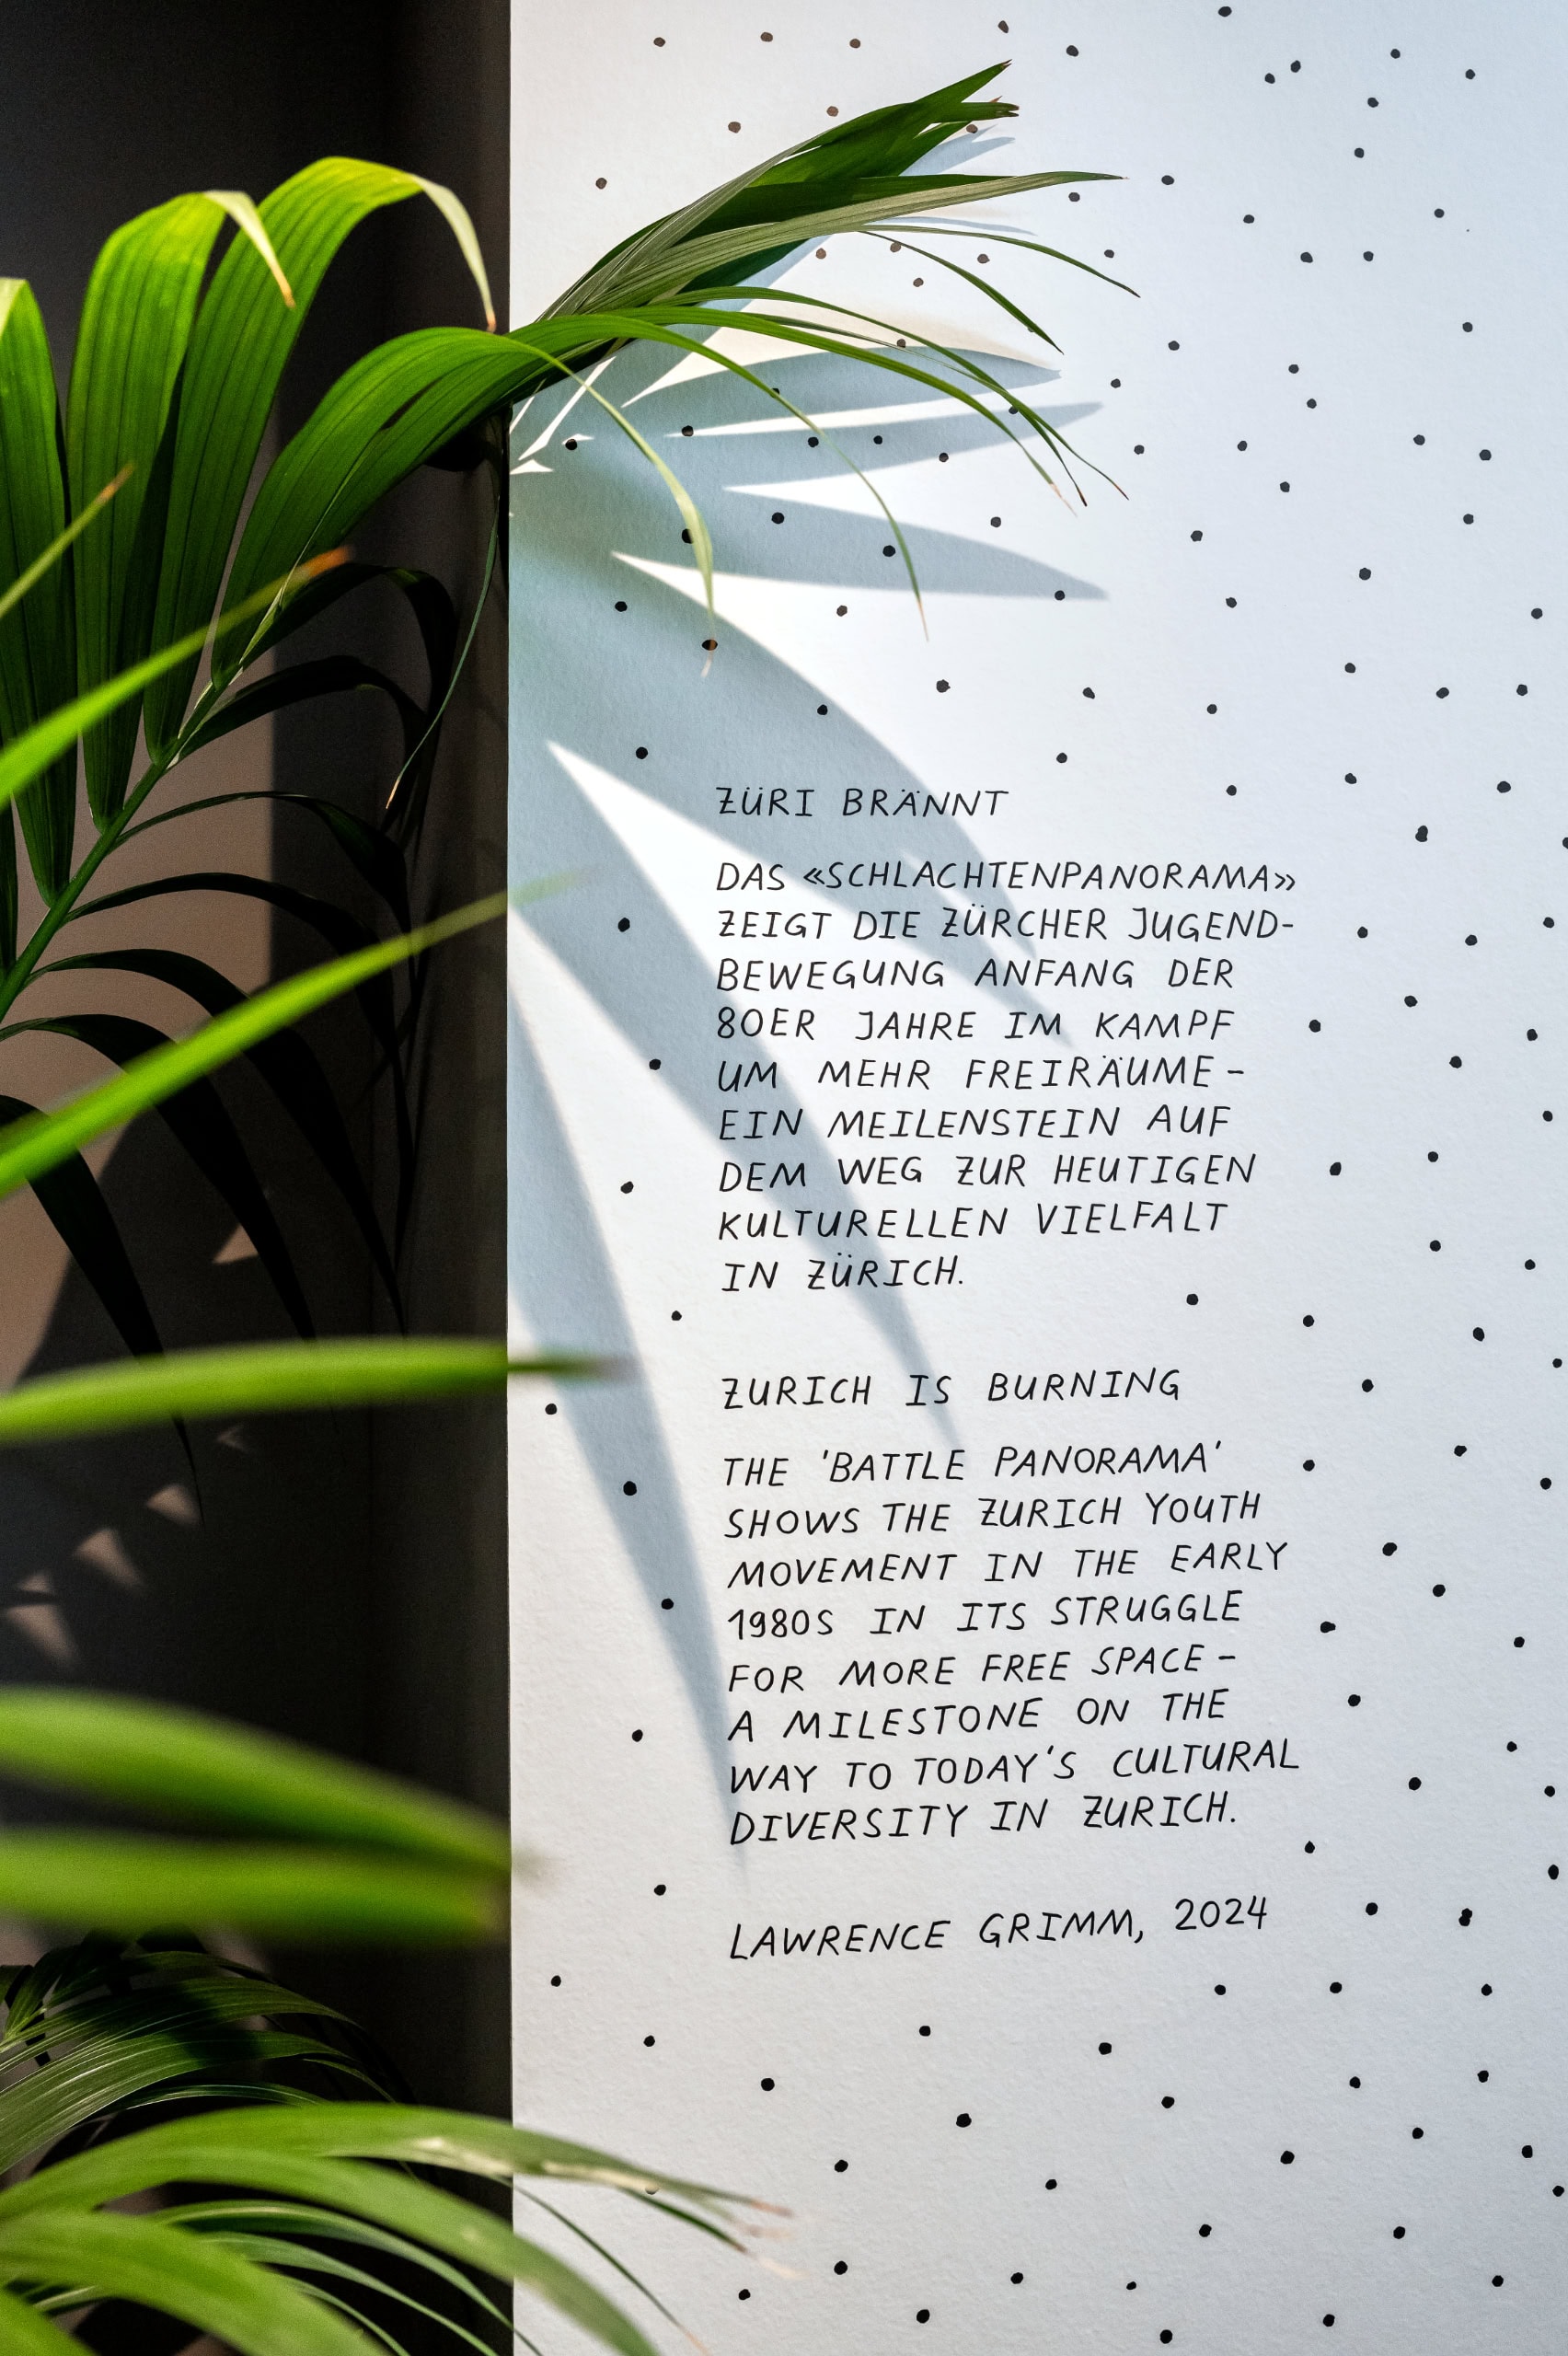 ZÜRI BRÄNNT
DAS «SCHLACHTENPANORAMA»
ZEIGT DIE ZÜRCHER JUGEND-
BEWEGUNG ANFANG DER
80ER JAHRE IM KAMPF
UM MEHR FREIRÄUME –
EIN MEILENSTEIN AUF
DEM WEG ZUR HEUTIGEN
KULTURELLEN VIELFALT
IN ZÜRICH.
ZURICH IS BURNING
THE 'BATTLE PANORAMA'
SHOWS THE ZURICH YOUTH
MOVEMENT IN THE EARLY
1980S IN ITS STRUGGLE
FOR MORE FREE SPACE –
A MILESTONE ON THE
WAY TO TODAY'S CULTURAL
DIVERSITY IN ZURICH.
LAWRENCE GRIMM, 2024